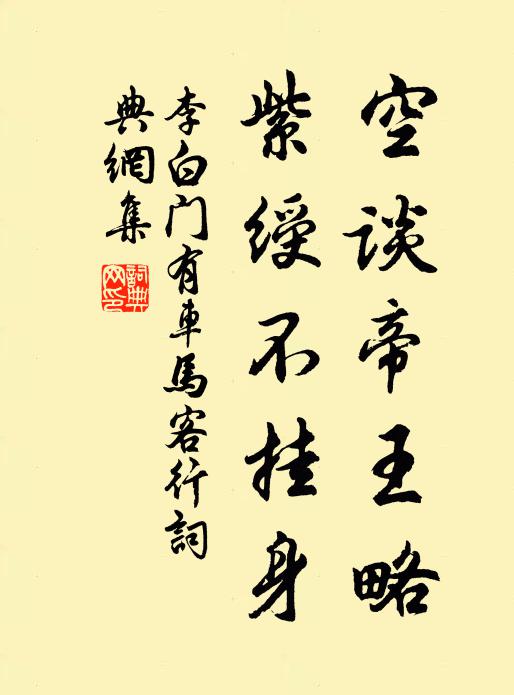 空談帝王略
紫綬不挂身
李白門有車馬客行詞
典網集
詞典網印